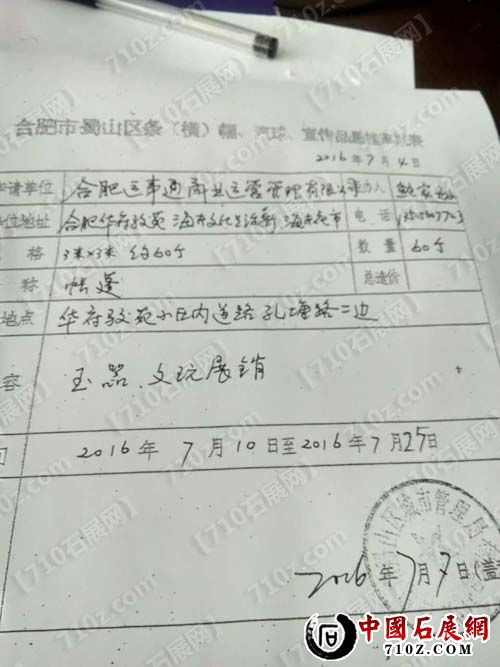 合肥市蜀山区条（横）幅、汽球、宣传品悬挂审批表
2016年7月4日
申请单位 合肥运事通商业运营管理有限公司 办人
单位地址 合肥华府骏苑 海 电话
格 3米×3米 约60个 数量 60个
称 帐篷 总造价
地点 华府骏苑小区内道路 孔塘路二边
容 玉器、文玩展销
间 2016年7月10日至2016年7月25日
蜀山区城市管理局
2016年7月7日(盖
中國石展網
710Z.COM
【710z石展网】
710z.com